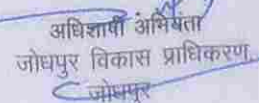 अधिशाषी अभियंता
जोधपुर विकास प्राधिकरण
जोधपुर